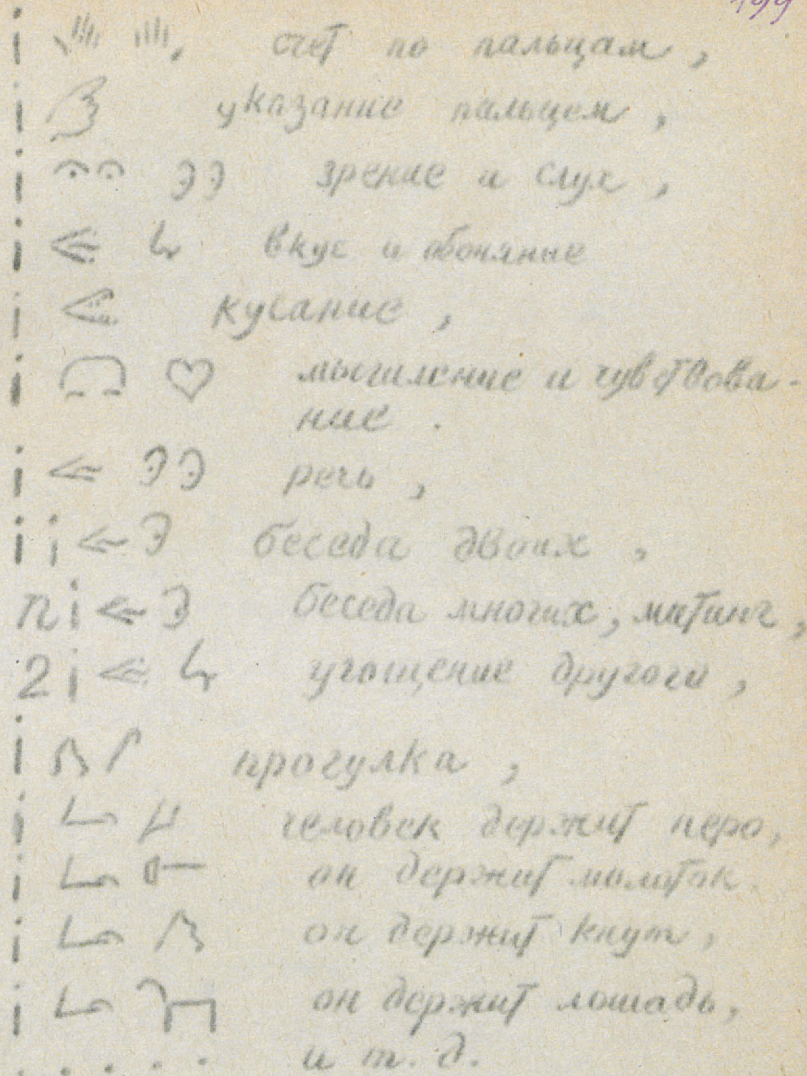 199
счет по пальцам,
указание пальцем,
зрение и слух,
вкус и обоняние
кусание,
мышление и чувствова-
ние.
i речь,
i i беседа двоих,
n i беседа многих, митинг,
2 i угощение другого,
i прогулка,
i человек держит перо,
i он держит молоток.
i он держит кнут,
i он держит лошадь,
. . . . . и т. д.